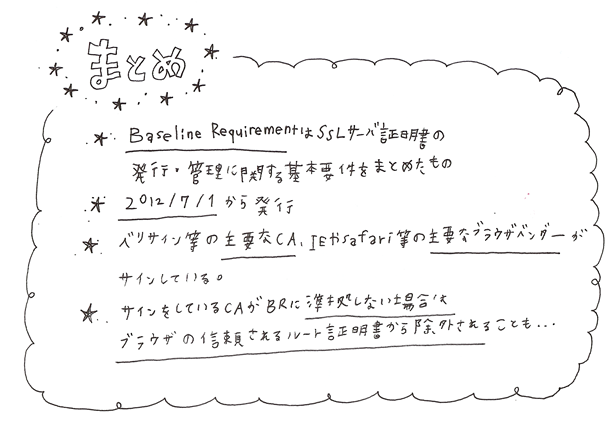 まとめ
Baseline RequirementはSSLサーバ証明書の
発行・管理に関する基本要件をまとめたもの
2012/7/1から発行
ベリサイン等の主要なCA、IEやSafari等の主要なブラウザベンダーが
サインしている。
サインをしているCAがBRに準拠しない場合は
ブラウザの信頼されるルート証明書から除外されることも...